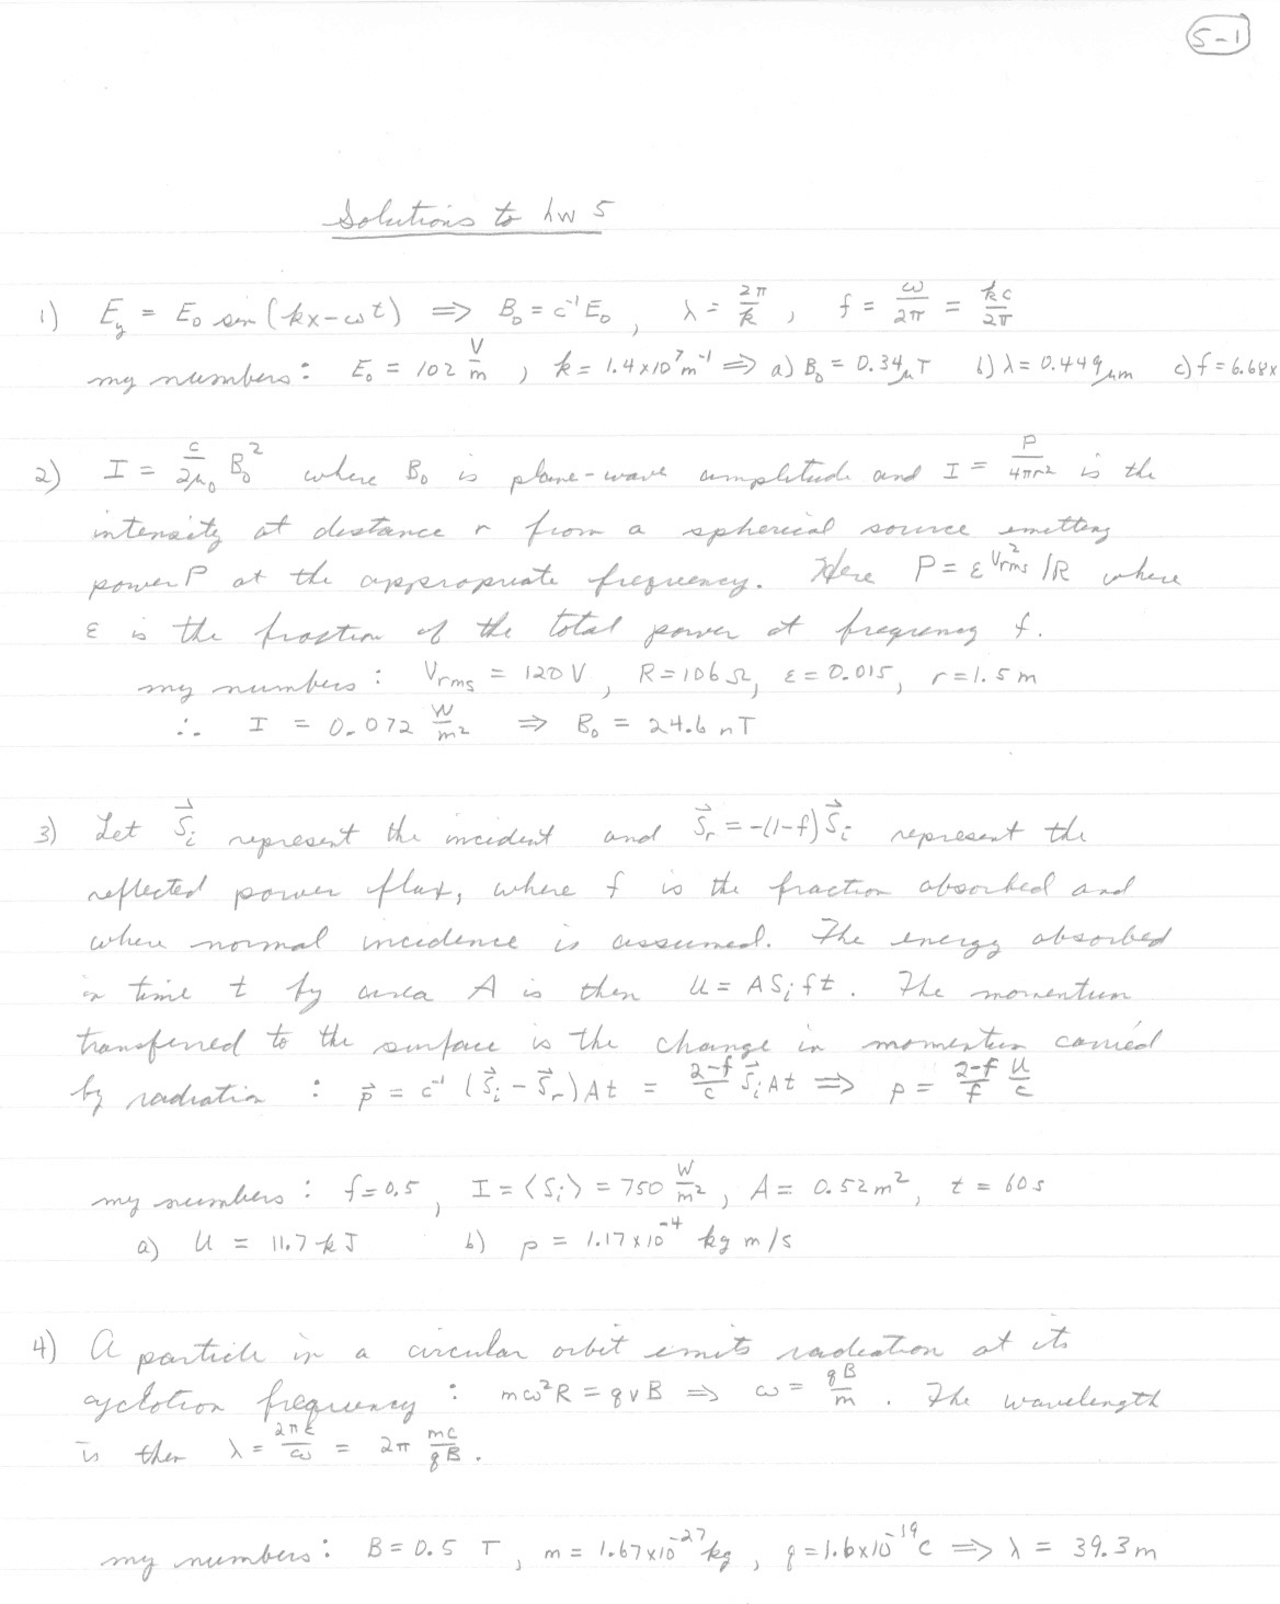 5-1
Solutions to hw 5
1) E_y = E_0 sin(kx-ωt) ⟹ B_0 = c⁻¹E_0, λ = 2π/k, f = ω/2π = kc/2π
my numbers: E_0 = 102 V/m, k = 1.4×10⁷m⁻¹ ⟹ a) B_0 = 0.34μT b) λ = 0.449μm c) f = 6.68x
2) I = c/2μ_0 B_0² where B_0 is plane-wave amplitude and I = P/4πr² is the
intensity at distance r from a spherical source emitting
power P at the appropriate frequency. Here P = ε V_rms²/R where
ε is the fraction of the total power at frequency f.
my numbers: V_rms = 120 V, R = 106 Ω, ε = 0.015, r = 1.5 m
∴ I = 0.072 W/m² ⟹ B_0 = 24.6 nT
3) Let S⃗_i represent the incident and S⃗_r = -(1-f)S⃗_i represent the
reflected power flux, where f is the fraction absorbed and
where normal incidence is assumed. The energy absorbed
in time t by area A is then U = AS_i f t. The momentum
transferred to the surface is the change in momentum carried
by radiation : p⃗ = c⁻¹ (S⃗_i - S⃗_r)At = 2-f/c S⃗_i At ⟹ p = 2-f/f U/c
my numbers : f = 0.5, I = ⟨S_i⟩ = 750 W/m², A = 0.52 m², t = 60 s
a) U = 11.7 kJ b) p = 1.17×10⁻⁴ kg m/s
4) A particle in a circular orbit emits radiation at its
cyclotron frequency : mω²R = qvB ⟹ ω = qB/m. The wavelength
is then λ = 2πc/ω = 2π mc/qB.
my numbers: B = 0.5 T, m = 1.67×10⁻²⁷ kg, q = 1.6×10⁻¹⁹ C ⟹ λ = 39.3 m